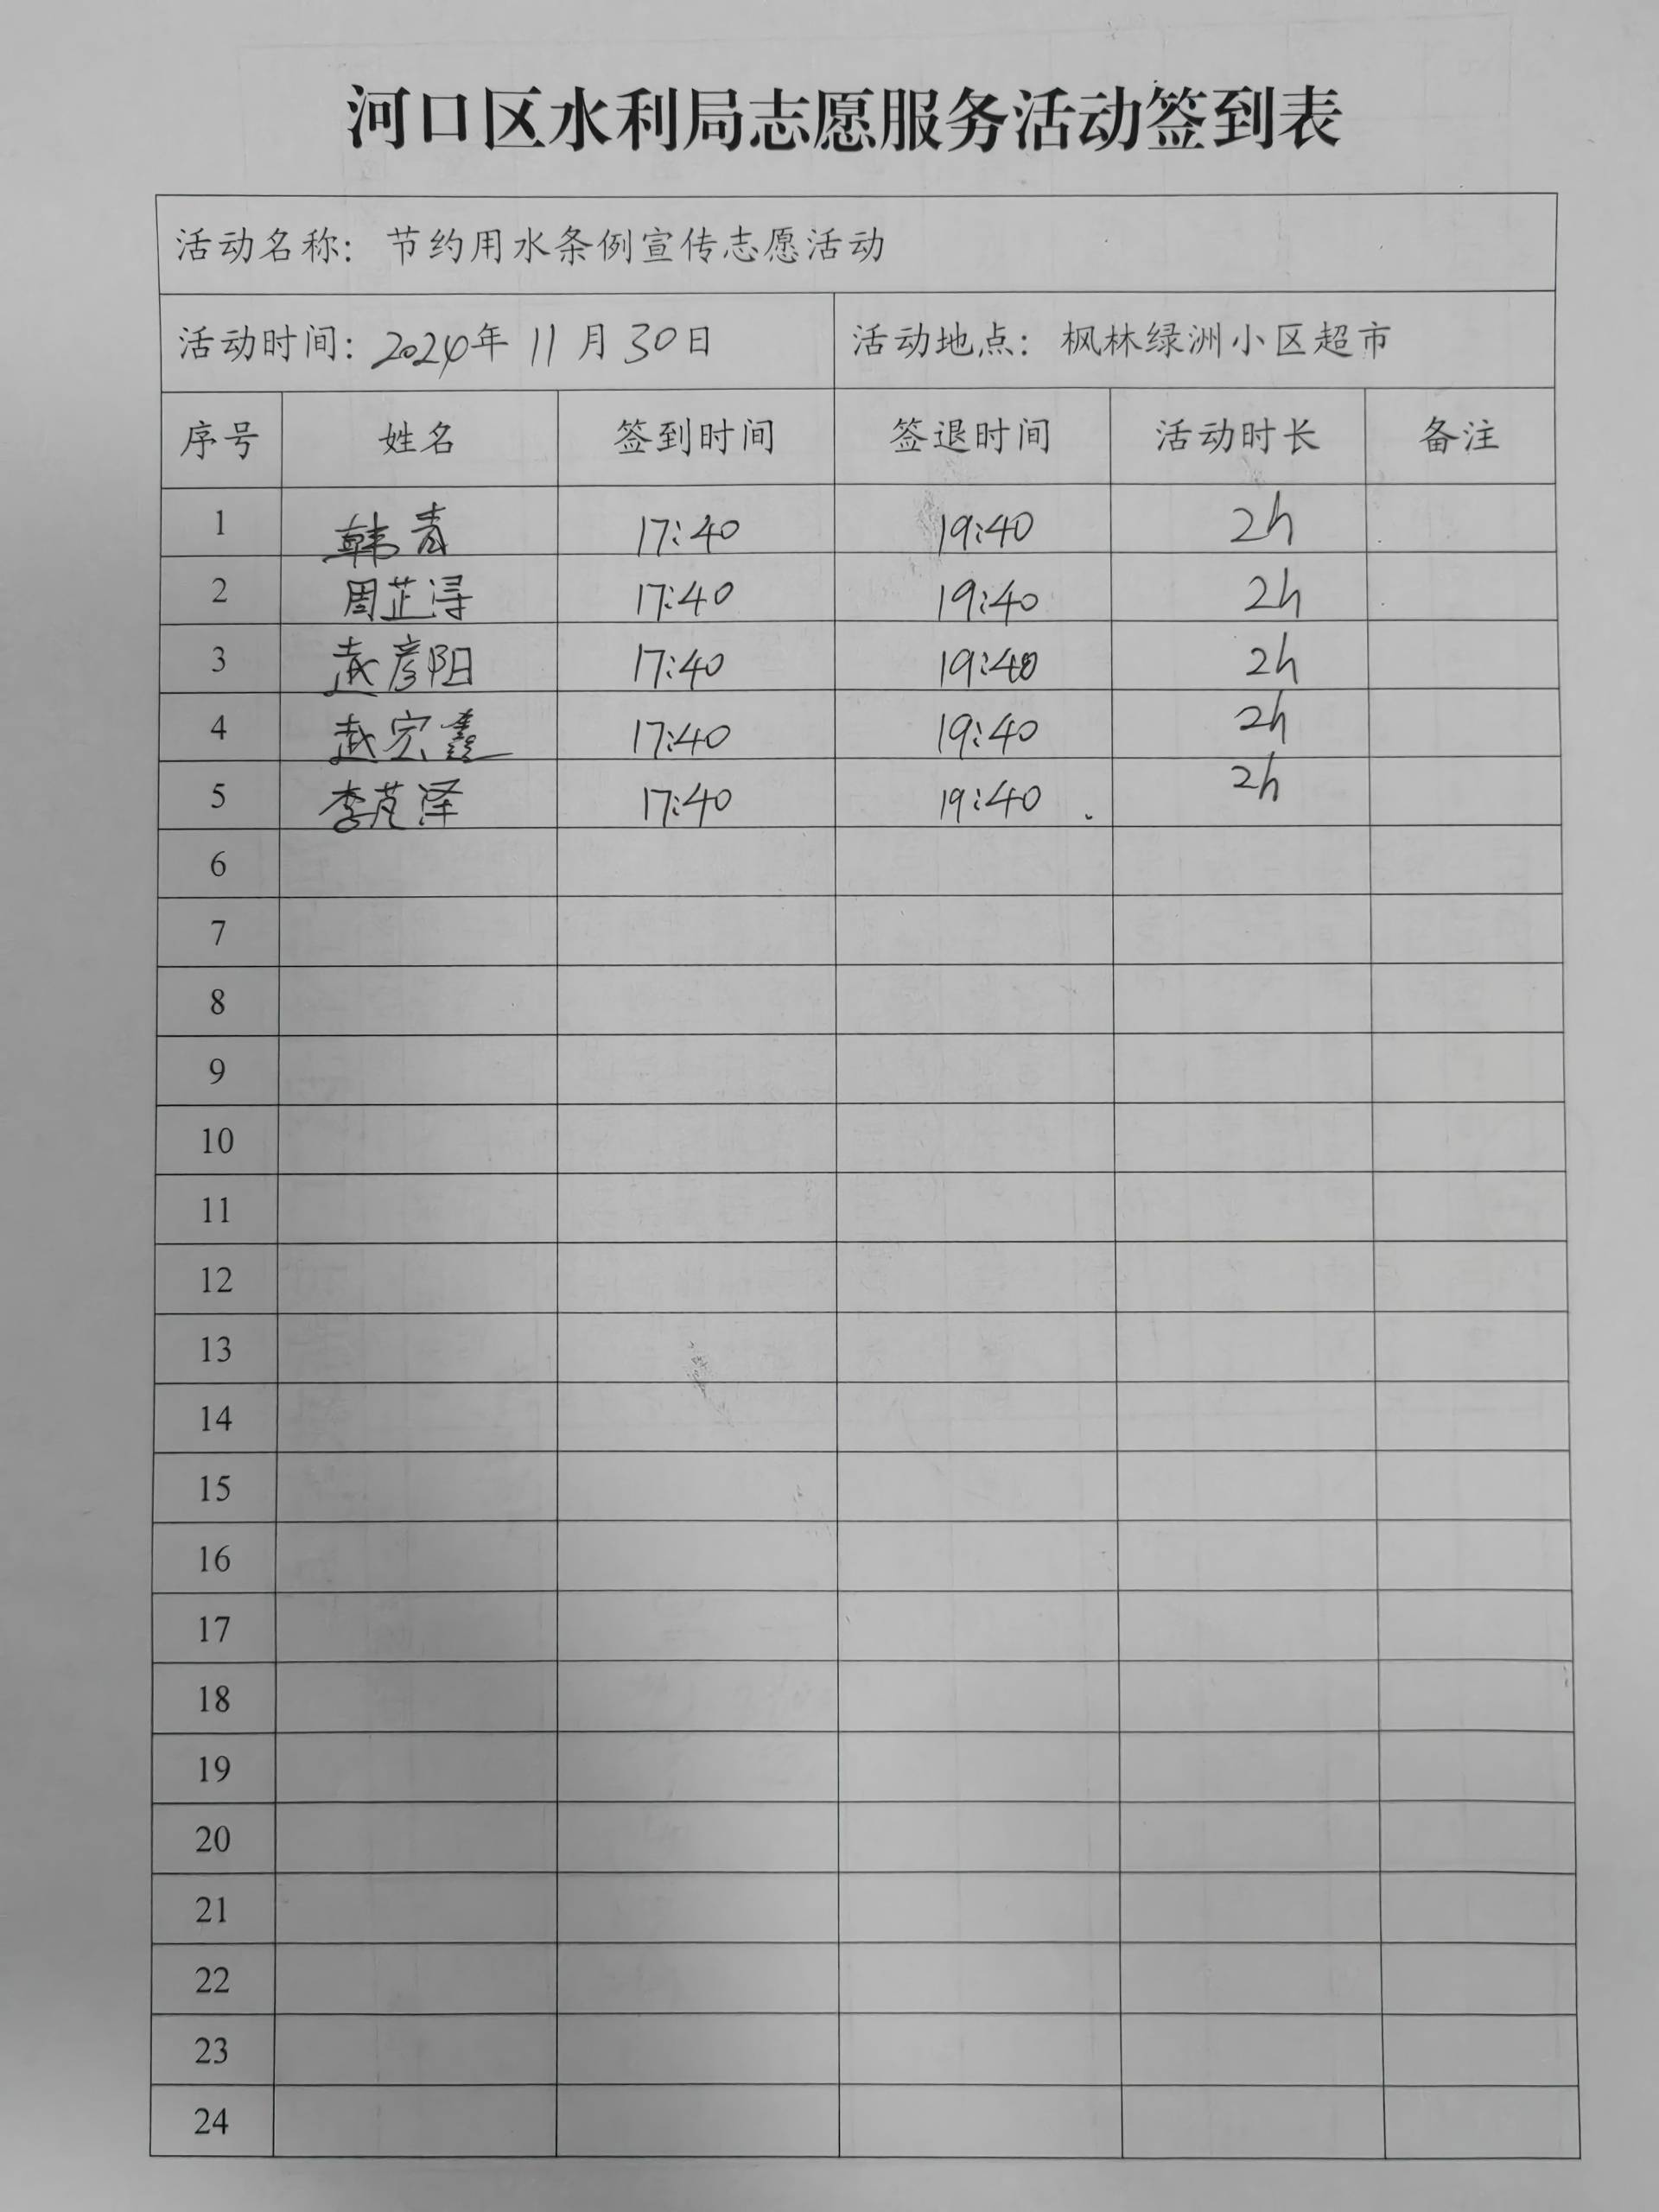 河口区水利局志愿服务活动签到表
活动名称：节约用水条例宣传志愿活动
活动时间：2024年 11 月 30日 活动地点：枫林绿洲小区超市
序号 姓名 签到时间 签退时间 活动时长 备注
1 韩青 17:40 19:40 2h
2 周芷浔 17:40 19:40 2h
3 赵彦阳 17:40 19:40 2h
4 赵宏鑫 17:40 19:40 2h
5 李芃泽 17:40 19:40 2h
6
7
8
9
10
11
12
13
14
15
16
17
18
19
20
21
22
23
24